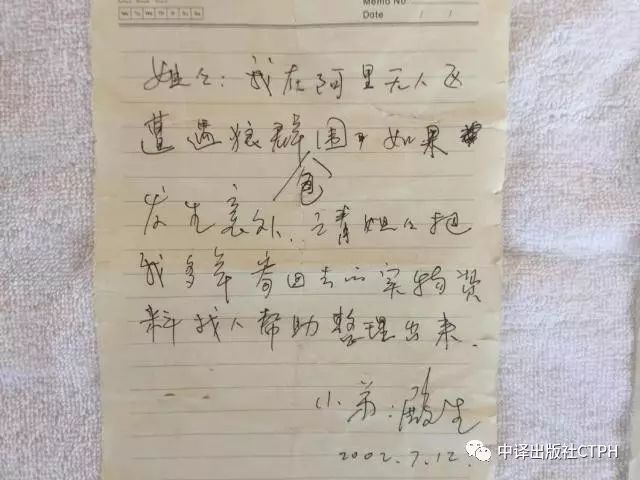 Memo No.
Date / /
Mo Tu We Th Fr Sa Su
姐姐：我在阿里无人区
遭遇狼群围包，如果
发生意外，请姐姐把
我多年寄回去的实物资
料找人帮助整理出来．
小弟：殿生
2002.7.12.
中译出版社CTPH